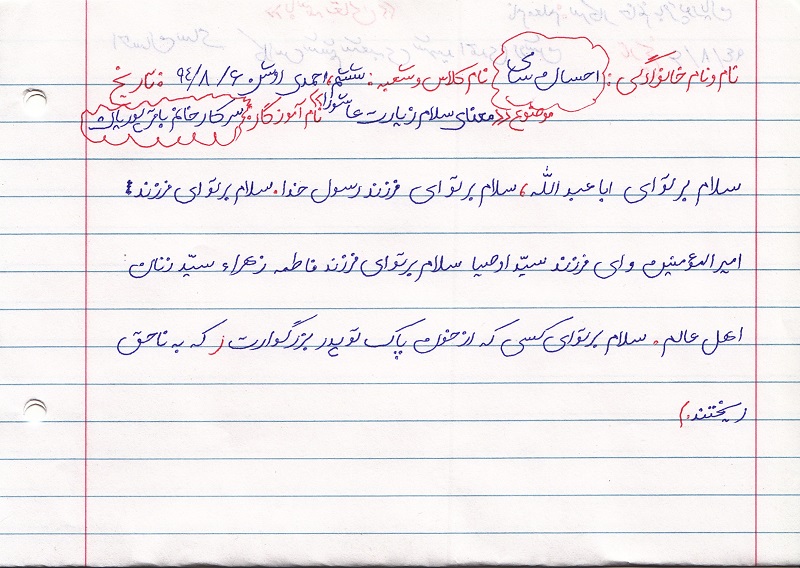 نام و نام خانوادگی: احسان نام کلاس و شعبه: ششم، احمدی روشن تاریخ: ۹۴/۸/۶
موضوع: ((معنای سلام زیارت عاشورا)) نام آموزگار: سرکار خانم باقرپور پاک
سلام بر تو ای ابا عبدالله، سلام بر تو ای فرزند رسول خدا. سلام بر تو ای فرزند:
امیرالمؤمنین و ای فرزند سیّد اوصیا سلام بر تو ای فرزند فاطمه زهراء سیّد زنان
اهل عالم. سلام بر تو ای کسی که از خون پاک تو پدر بزرگوارت ز که به ناحق
ریختند.)